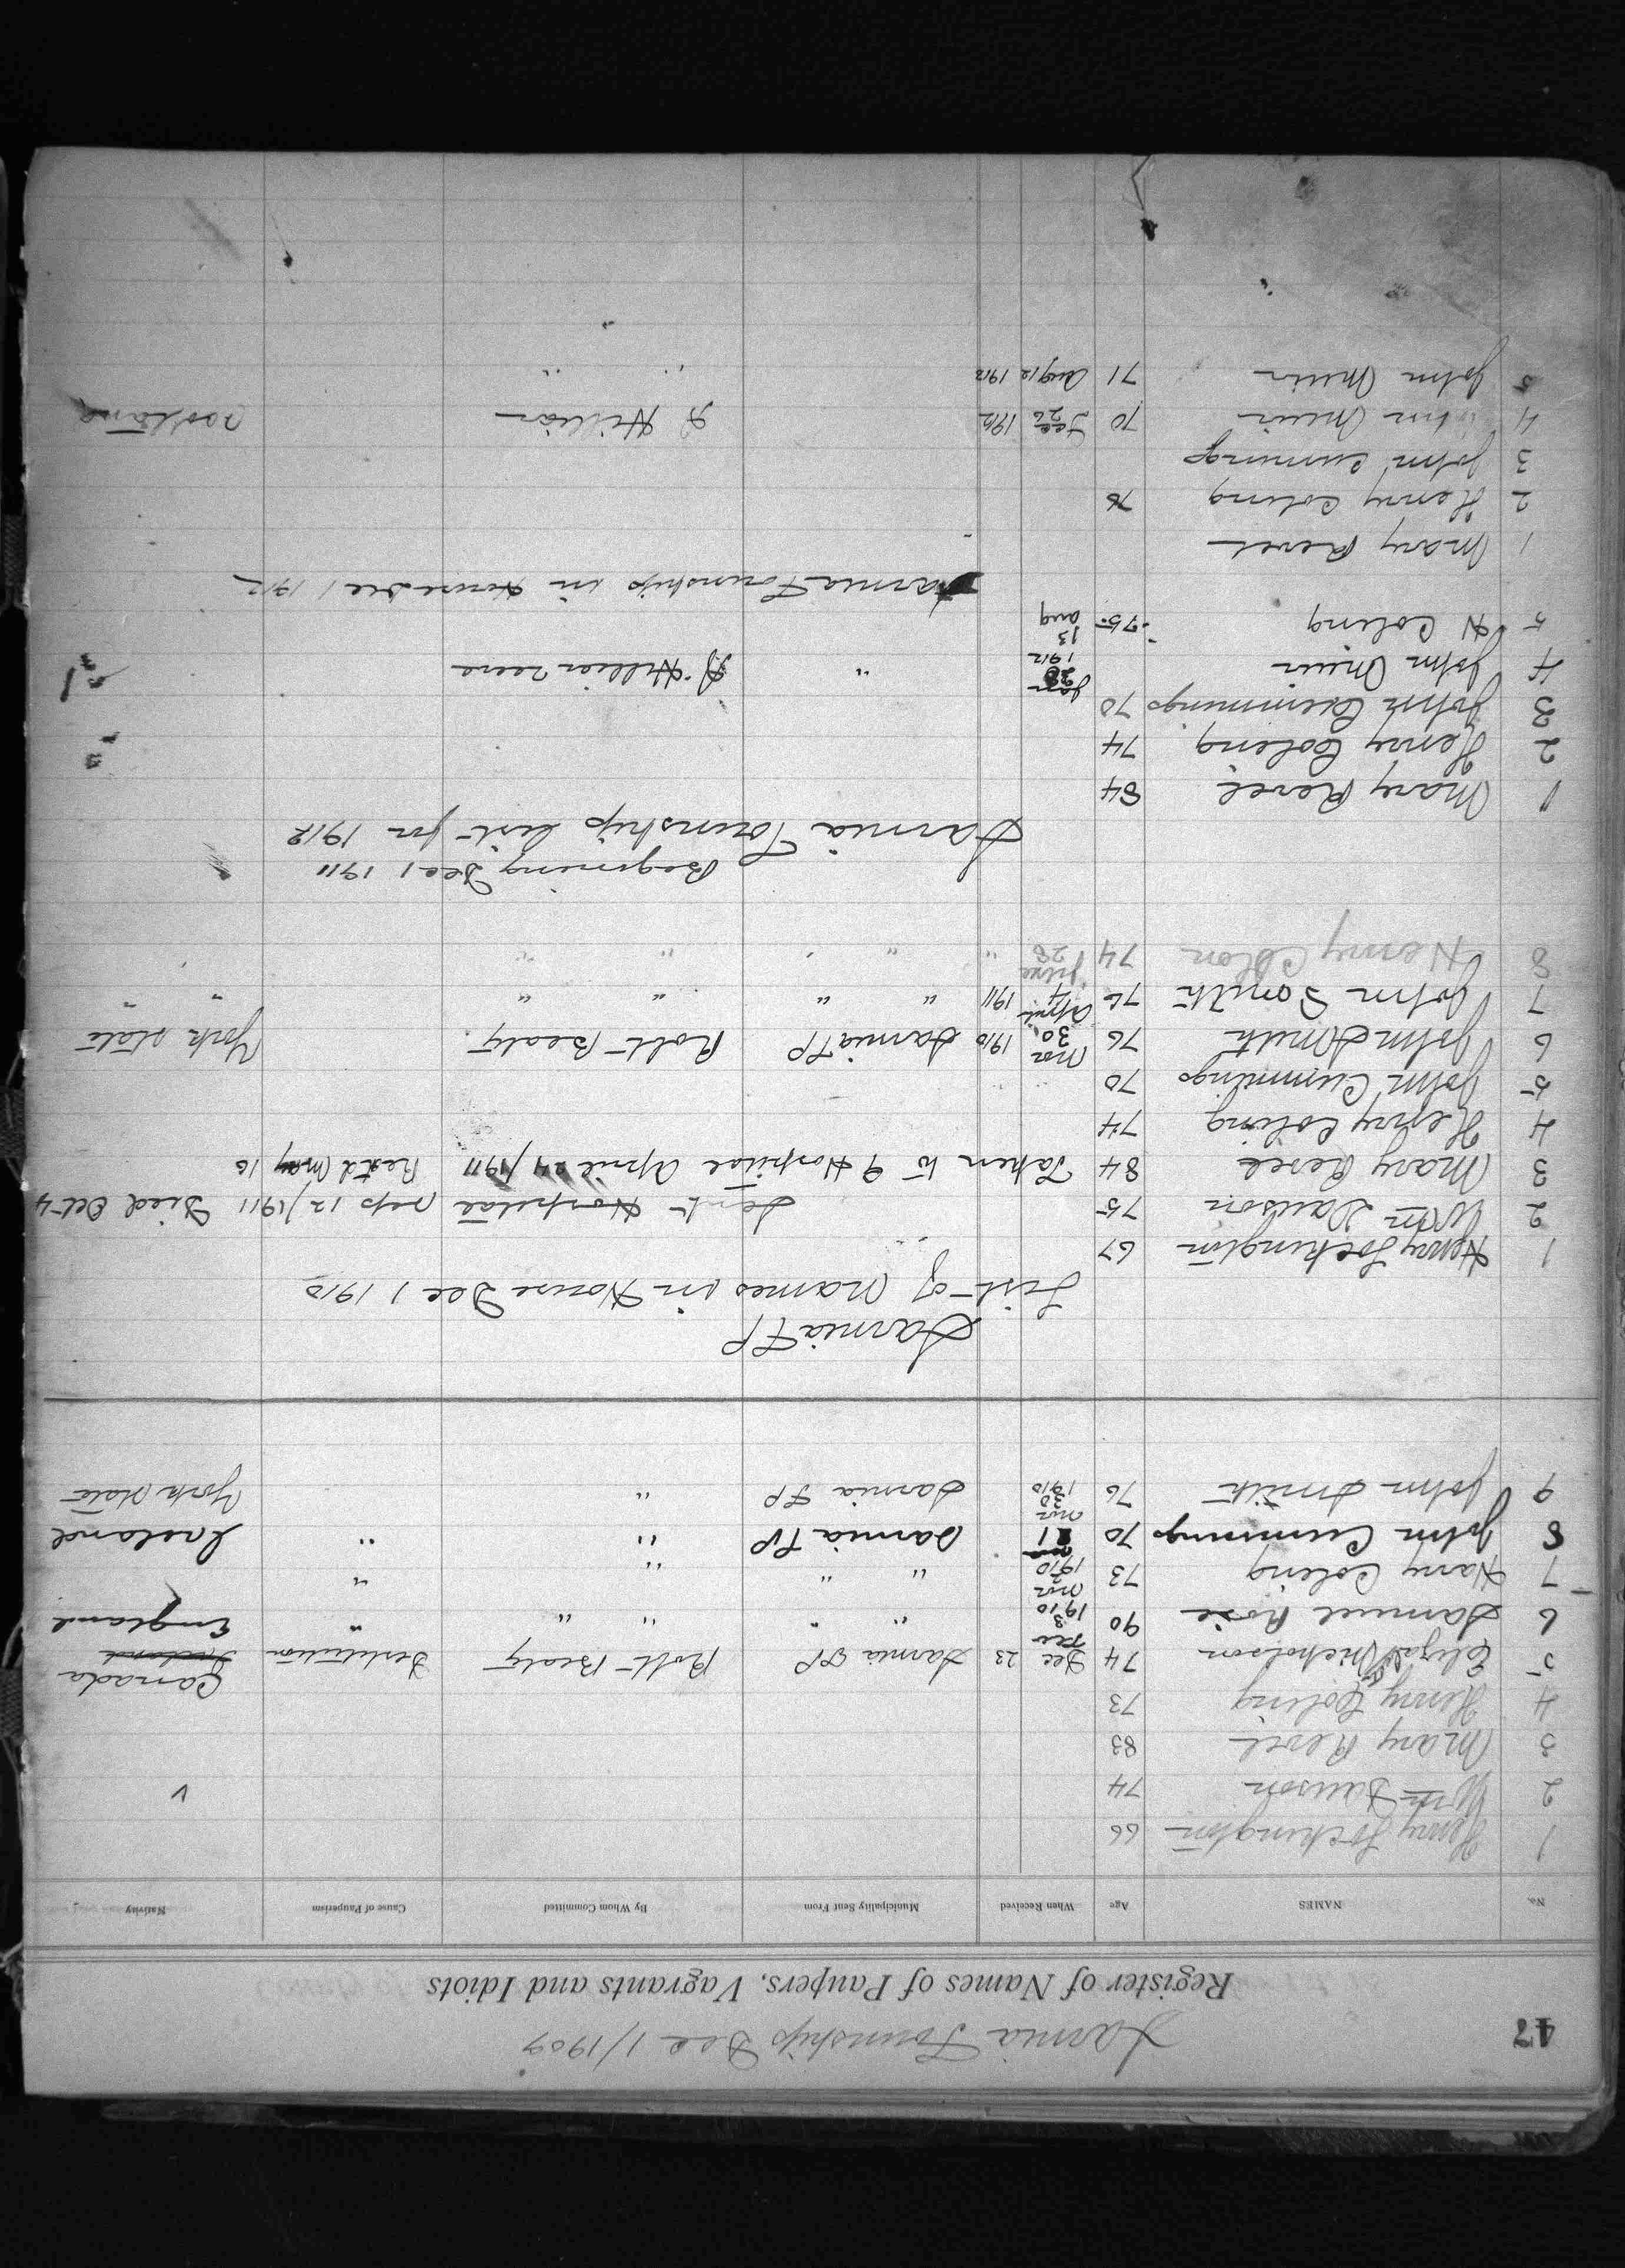 47
Sarnia Township Dec 1/1909
Register of Names of Paupers, Vagrants and Idiots
No. NAMES Age When Received Municipality Sent From By Whom Committed Cause of Pauperism Nativity
1 Henry Lockington 66
2 Wm Dawson 74
3 Mary Revel 83
4 Henry Coling 73
5 Elizabeth Nicholson 74 Dec 23 Sarnia TP Robt Beaty Destitution Canada
6 Samuel Rose 90 Feb 3 1910 " " " " " England
7 Harry Coling 73 Mar 1910 " " " "
8 John Cummings 70 1 Sarnia TP " " Ireland
9 John Smith 76 Nov 30 1910 Sarnia TP " York State
Sarnia TP
List of Names in House Dec 1 1910
1 Henry Lockington 67
2 Wm Dawson 75 Sent Hospital Sep 12/1911 Died Oct 4
3 Mary Revel 84 Taken to G Hospital April 24/1911 Retd May 16
4 Henry Coling 74
5 John Cummings 70
6 John Smith 76 Nov 30 1910 Sarnia TP Robt Beaty York State
7 John Smith 76 April 4 1911 " " " " " "
8 Henry Colon 74 June 28 " " " " "
Beginning Dec 1 1911
Sarnia Township list for 1912
1 Mary Revel 84
2 Henry Coling 74
3 John Cummings 70
4 John Muir Jan 1912 " A Hillier reeve
5 H Coling 75 13 Aug
Sarnia Township in House Dec 1 1912
1 Mary Revel
2 Henry Coling 76
3 John Cummings
4 John Muir 70 Dec 26 1912 A Hillier Scotland
5 John Muir 71 Aug 12 1912 " "